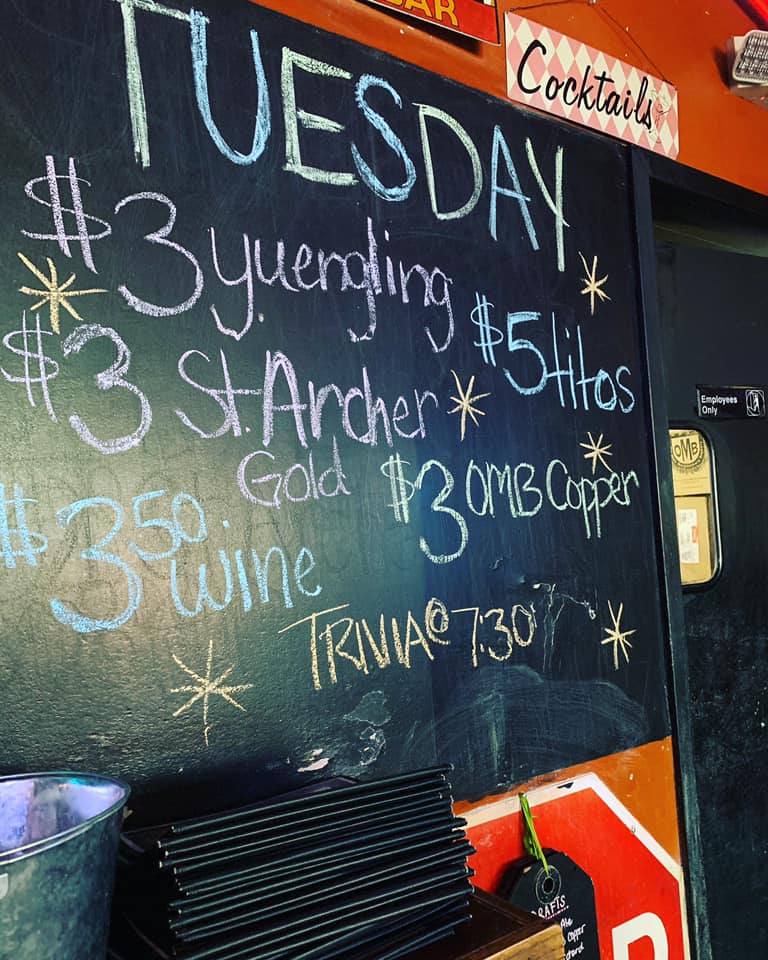 BAR
Cocktails
TUESDAY
$3 yuengling
$5 titos
$3 St. Archer
Gold
$3 OMB Copper
$3.50 wine
TRIVIA@7:30
Employees
Only
OMB
DRAFTS
Copper